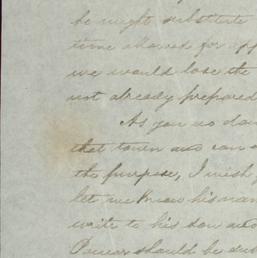 he might substitute
time allowed for app
we would lose the
not already prepared
As you no dou
that town and can a
the purpose, I wish y
let me know his nam
write to his son and
should be